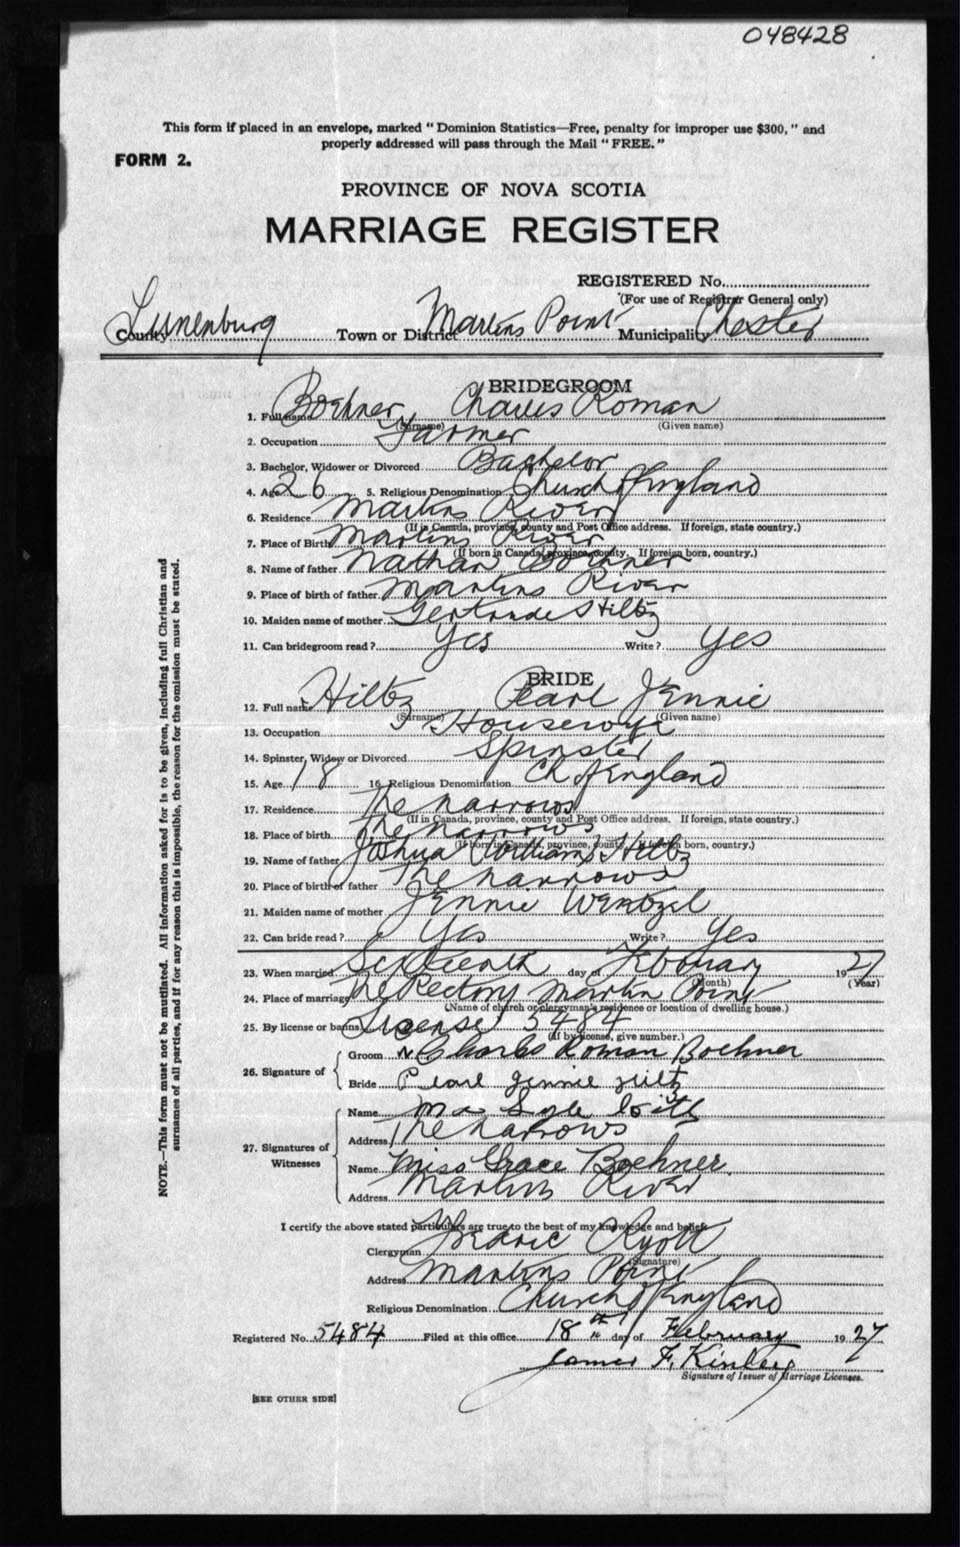 048428
This form if placed in an envelope, marked "Dominion Statistics—Free, penalty for improper use $300," and
properly addressed will pass through the Mail "FREE."
FORM 2.
PROVINCE OF NOVA SCOTIA
MARRIAGE REGISTER
REGISTERED No.
(For use of Registrar General only)
County Lunenburg Town or District Martins Point Municipality Chester
BRIDEGROOM
1. Full name Boehner Charles Roman
(Surname) (Given name)
2. Occupation Farmer
3. Bachelor, Widower or Divorced Bachelor
4. Age 26 5. Religious Denomination Church of England
6. Residence Martins River
(If in Canada, province, county and Post Office address. If foreign, state country.)
7. Place of Birth Martins River
(If born in Canada, province, county. If foreign born, country.)
8. Name of father Nathan Boehner
9. Place of birth of father Martins River
10. Maiden name of mother Gertrude Hiltz
11. Can bridegroom read? Yes Write? Yes
BRIDE
12. Full name Hiltz Pearl Jennie
(Surname) (Given name)
13. Occupation Housewife
14. Spinster, Widow or Divorced Spinster
15. Age 18 16. Religious Denomination Ch of England
17. Residence The Narrows
(If in Canada, province, county and Post Office address. If foreign, state country.)
18. Place of birth The Narrows
(If born in Canada, province, county. If foreign born, country.)
19. Name of father Joshua (William) Hiltz
20. Place of birth of father The Narrows
21. Maiden name of mother Jennie Wentzel
22. Can bride read? Yes Write? Yes
23. When married day of February 1927
(Month) (Year)
24. Place of marriage The Rectory Martin Point
(Name of church or clergyman's residence or location of dwelling house.)
25. By license or banns License 5484
(If by license, give number.)
26. Signature of Groom Charles Roman Boehner
Bride Pearl Jennie Hiltz
27. Signatures of Witnesses Name
Address The Narrows
Name Miss Grace Boehner
Address Martins River
I certify the above stated particulars are true to the best of my knowledge and belief.
Clergyman Ryott
(Signature)
Address Martins Point
Religious Denomination Church of England
Registered No. 5484 Filed at this office 18th day of February 1927
James F. Kinley
Signature of Issuer of Marriage Licenses.
[SEE OTHER SIDE]
NOTE.—This form must not be mutilated. All information asked for is to be given, including full Christian and
surnames of all parties, and if for any reason this is impossible, the reason for the omission must be stated.